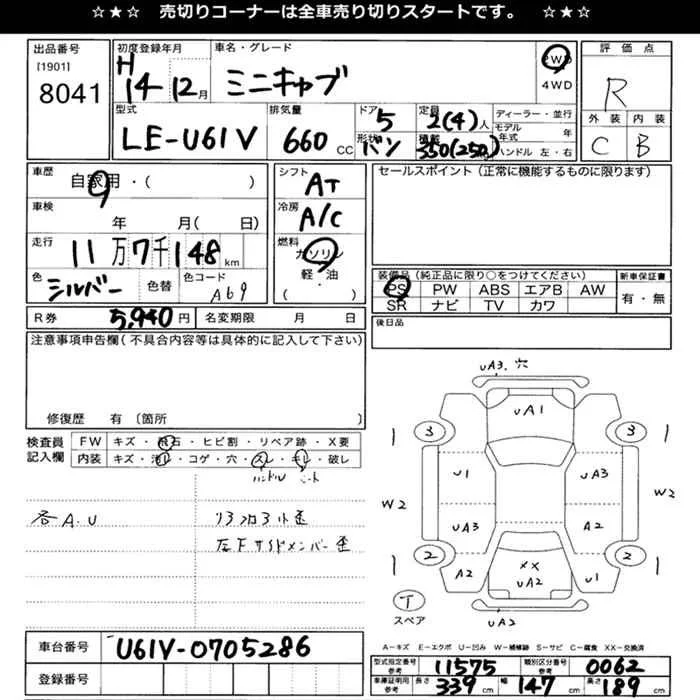 ☆★☆ 売切りコーナーは全車売り切りスタートです。 ☆★☆
出品番号
[1901]
8041
初度登録年月
H14年12月
車名・グレード
ミニキャブ
2WD
4WD
評価点
R
外装 内装
C B
型式
LE-U61V
排気量
660 CC
ドア 5
形状 バン
定員 2(4)人
積載 350(250)
ディーラー・並行
モデル年式 年
ハンドル 左・右
車歴
自家用・( )
車検
年 月(日)
走行
11万7千148km
色 シルバー 色替
色コード A69
シフト
AT
冷房
A/C
燃料
ガソリン
軽・油
( )
セールスポイント(正常に機能するものに限ります)
装備品(純正品に限り○をつけてください)
PS PW ABS エアB AW
SR ナビ TV カワ
新車保証書
有・無
R券 5,940円 名変期限 月 日
後日品
注意事項申告欄(不具合内容等は具体的に記入して下さい)
修復歴 有 〔箇所
検査員記入欄
FW キズ・飛石・ヒビ割・リペア跡・X要
内装 キズ・汚レ・コゲ・穴・スレ・キレ・破レ
ハンドル シート
各A.U
リアフロア小歪
左下サイドメンバー歪
uA3.穴
uA1
3 3
U1 uA3
W2 W2
uA3 A2
2 2
A2 XX uA2 U1
T
スペア
uA2
A-キズ E-エクボ U-凹み W-補修跡 S-サビ C-腐食 XX-交換済
車台番号 U61V-0705286
登録番号
型式指定番号 参考 11575 類別区分番号 参考 0062
車庫証明用 参考 長さ 339cm 幅 147cm 高さ 189cm